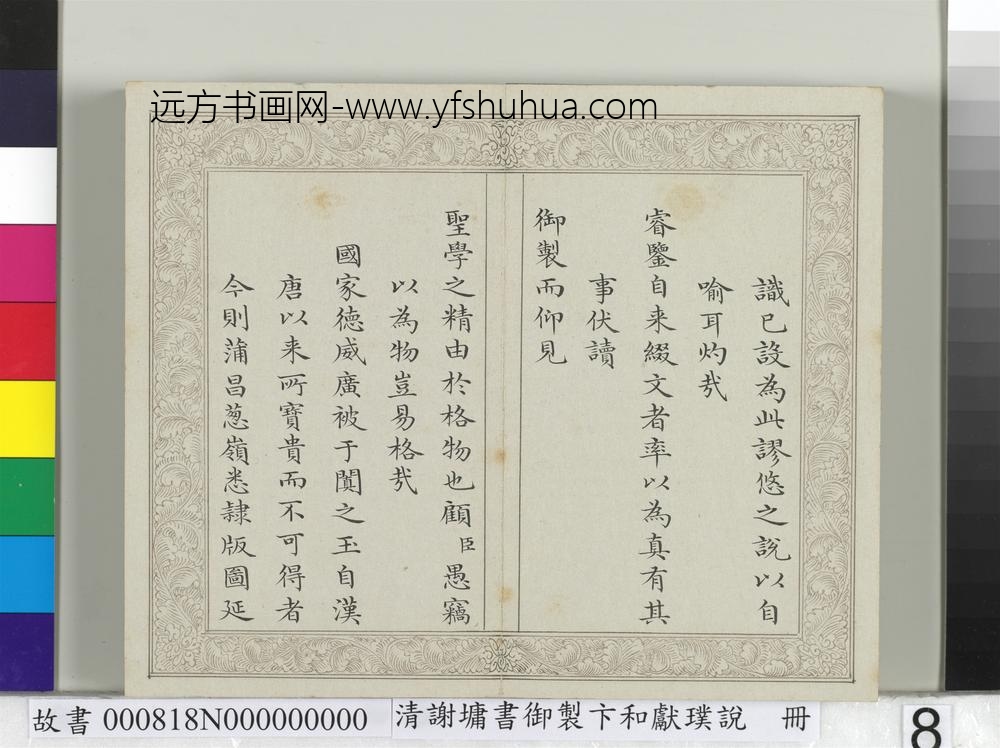 远方书画网-www.yfshuhua.com
識已設為此謬悠之說以自
喻耳灼哉
睿鑒自来綴文者率以為真有其
事伏讀
御製而仰見
聖學之精由於格物也顧臣愚竊
以為物豈易格哉
國家德威廣被于闐之玉自漢
唐以来所寶貴而不可得者
今則蒲昌葱嶺悉隸版圖延
故書 000818N000000000
清謝墉書御製卞和獻璞說 冊
8